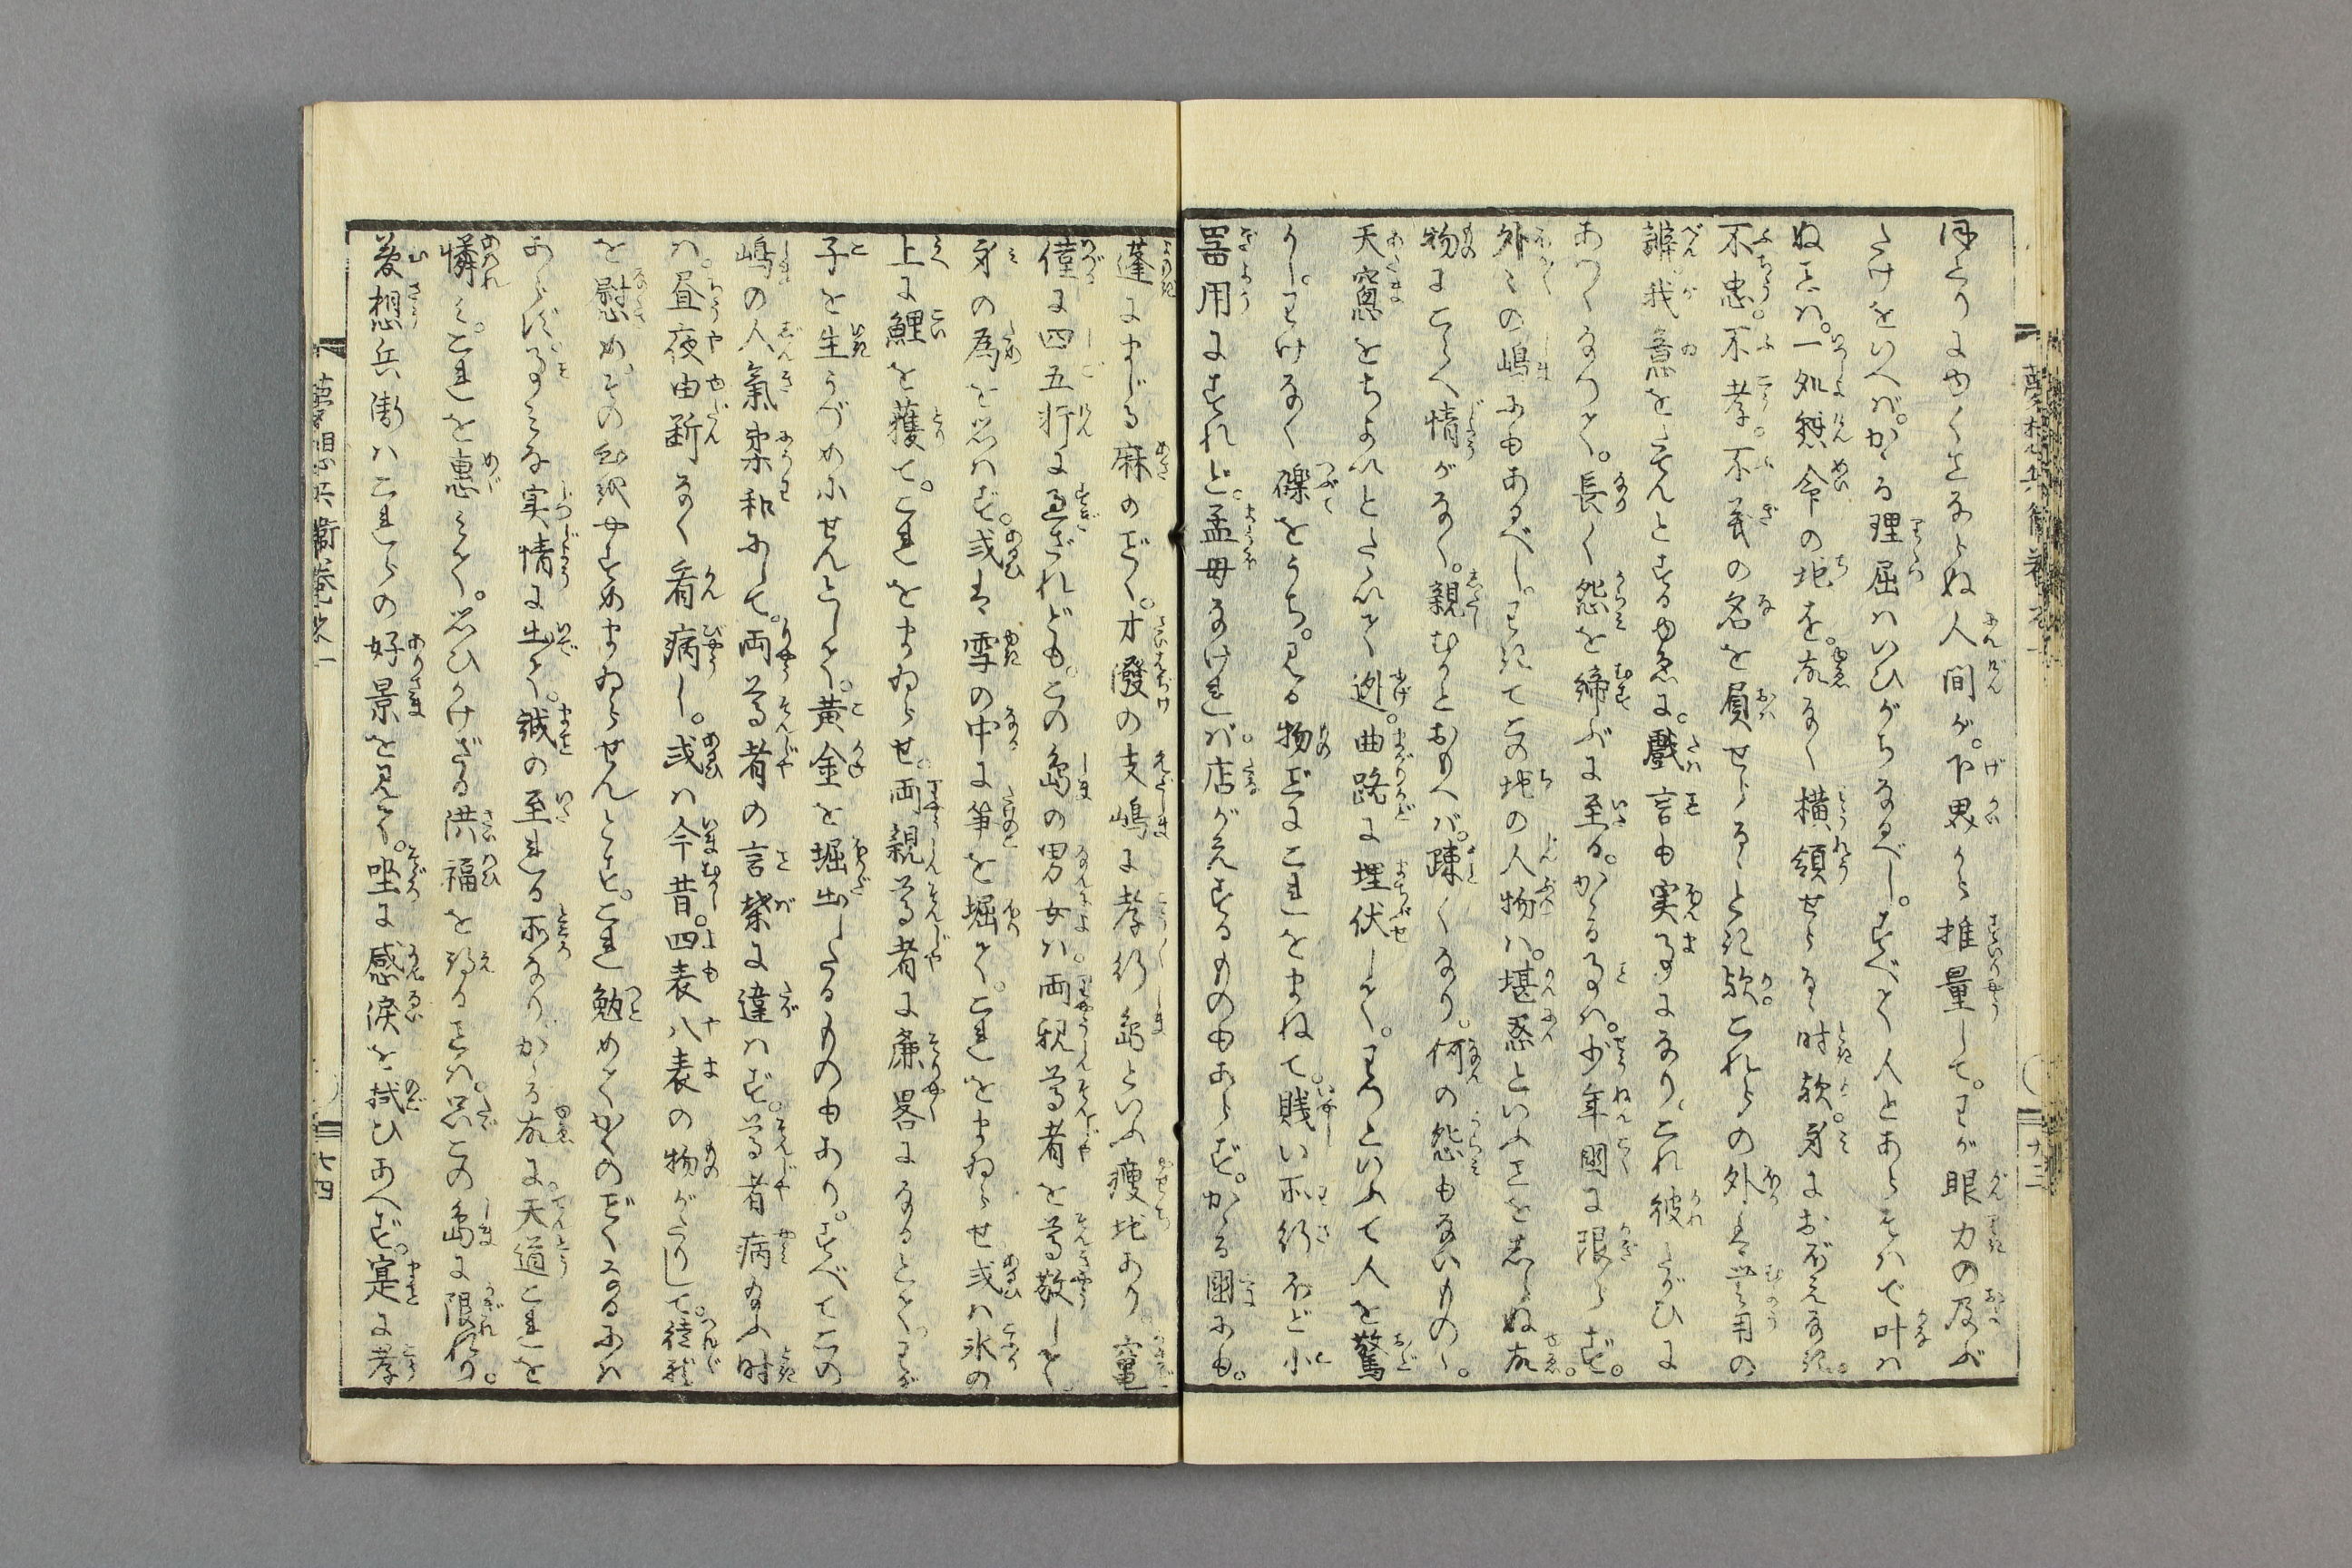 ぬ人間が。下界から推量して。わが眼力の及ぶ
たけをいへば。かゝる理屈はいひがちなるべし。すべて人とあらそはで叶は
ぬことは。一処懸命の地を。故なく横領せらるゝ時歟。身におぼえなき。
不忠。不孝。不義の名を負せらるゝとき歟。これらの外は無用の
辨我意をたてんとするゆゑに。戯言も実事になり。これ彼たがひに
あつくなつて。長く怨を締ぶに至る。かゝる事は。少年国に限らず。
外々の嶋にもあるべし。わきてこの地の人物は。堪忍といふことをしらぬ故。
物にこらへ情がなく。親むかとおもへば。疎くなり。何の怨もないものゝ。
天窓をちよいとたゝいて迯。曲路に埋伏して。わつといふて人を驚
かし。わけなく礫をうち。見る物ごとにこれをまねて。賎い所行ほど小
器用にすれど。孟母なければ。店がえするものもあらず。かゝる国にも。
蓬にまじる麻のごとく。才溌の支嶋に孝行島といふ痩地あり竃
僅に四五軒に過ざれども。この島の男女は。両親尊者を尊敬して。
身の為を思はず。或は雪の中に笋を堀て。これをまゐらせ或は氷の
上に鯉を獲て。これをまゐらせ。両親尊者に麁畧になるとて。わが
子を生うづめにせんとして。黄金を堀出したるものもあり。すべてこの
嶋の人氣柔和にして。両尊者の言葉に違はず。尊者病給ふ時
は。昼夜由断なく看病し。或は今昔。四表八表の物がたりして。徒然
を慰め。その気をやすめまゐらせんとす。これ勉めてかくのごとくなるには
あらず。事みな実情に出て。誠の至れる所なり。かゝる故に。天道これを
憐み。これを恵みて。思ひかけざる洪福を得ることは。只この島に限れり。
夢想兵衛はこれらの好景を見て。坐に感涙を拭ひあへず。寔に孝
夢想兵衛巻之一
十三
夢想兵衛巻之一
十四